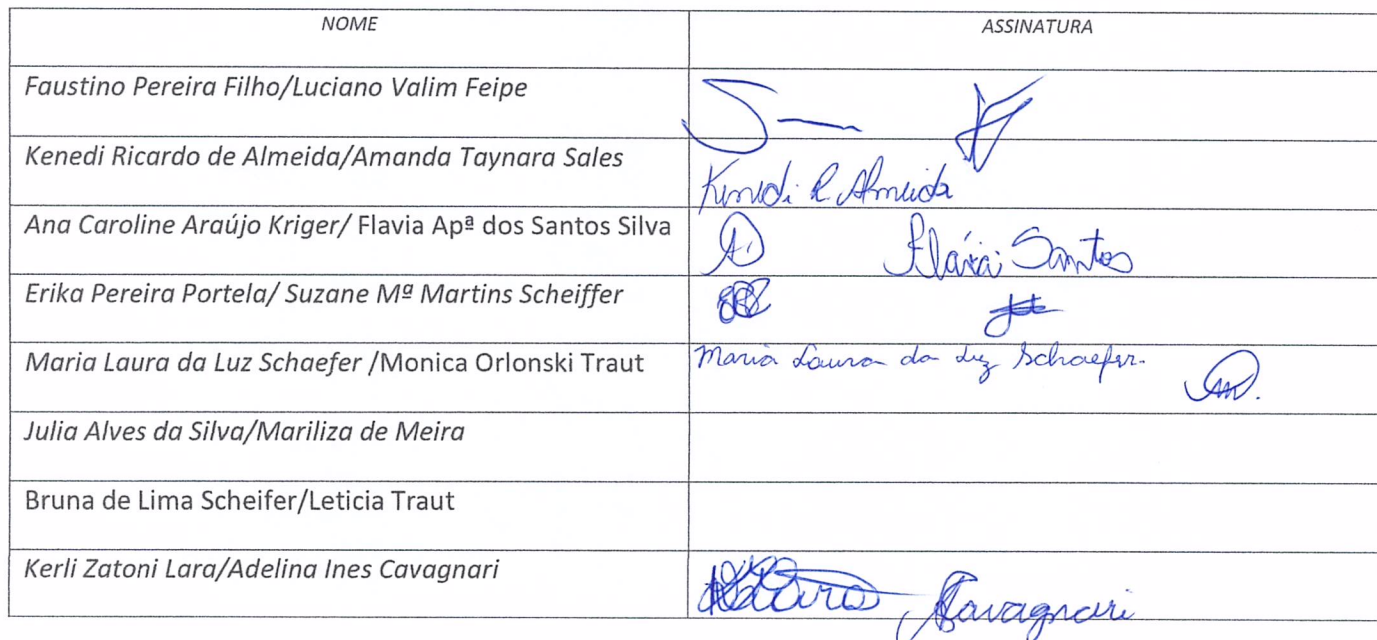 NOME ASSINATURA
Faustino Pereira Filho/Luciano Valim Feipe
Kenedi Ricardo de Almeida/Amanda Taynara Sales Kenedi R Almeida
Ana Caroline Araújo Kriger/ Flavia Apª dos Santos Silva Flávia Santos
Erika Pereira Portela/ Suzane Mª Martins Scheiffer
Maria Laura da Luz Schaefer /Monica Orlonski Traut Maria Laura da Luz Schaefer.
Julia Alves da Silva/Mariliza de Meira
Bruna de Lima Scheifer/Leticia Traut
Kerli Zatoni Lara/Adelina Ines Cavagnari Cavagnari